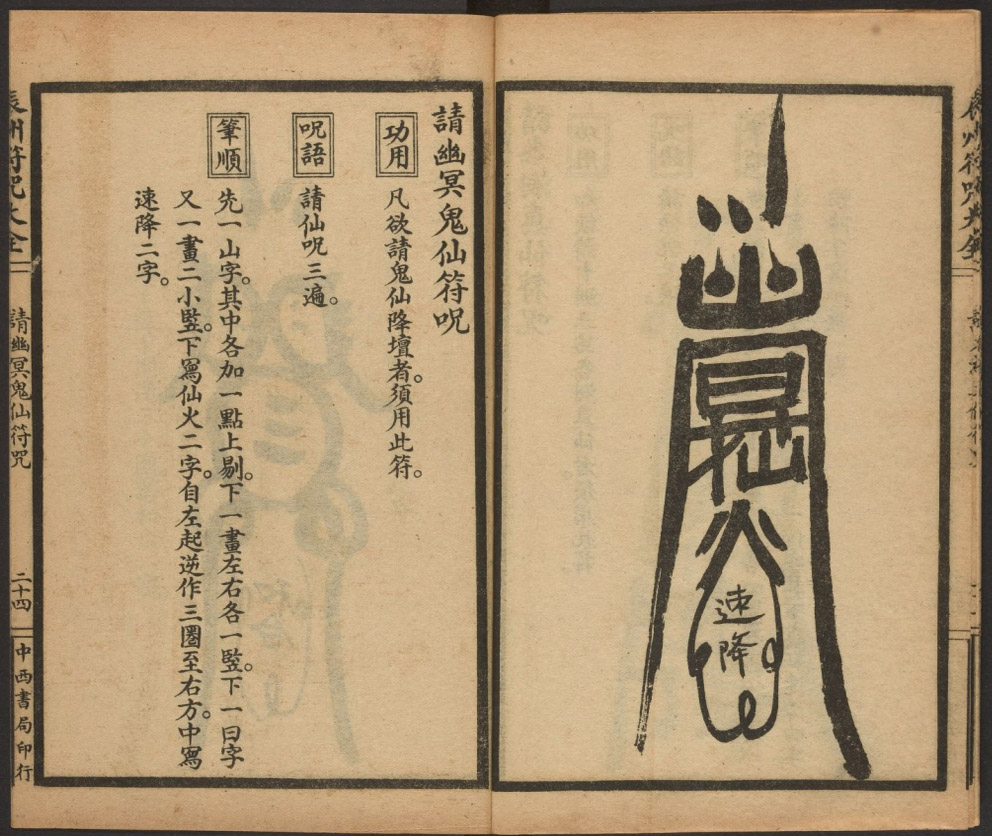 速降
請幽冥鬼仙符咒
功用
凡欲請鬼仙降壇者。須用此符。
呪語
請仙呪三遍。
筆順
先一山字。其中各加一點上剔。下一畫左右各一竪。下一曰字
又一畫二小竪。下寫仙火二字。自左起逆作三圈至右方。中寫
速降二字。
辰州符咒大全
請幽冥鬼仙符咒
二十四
中西書局印行